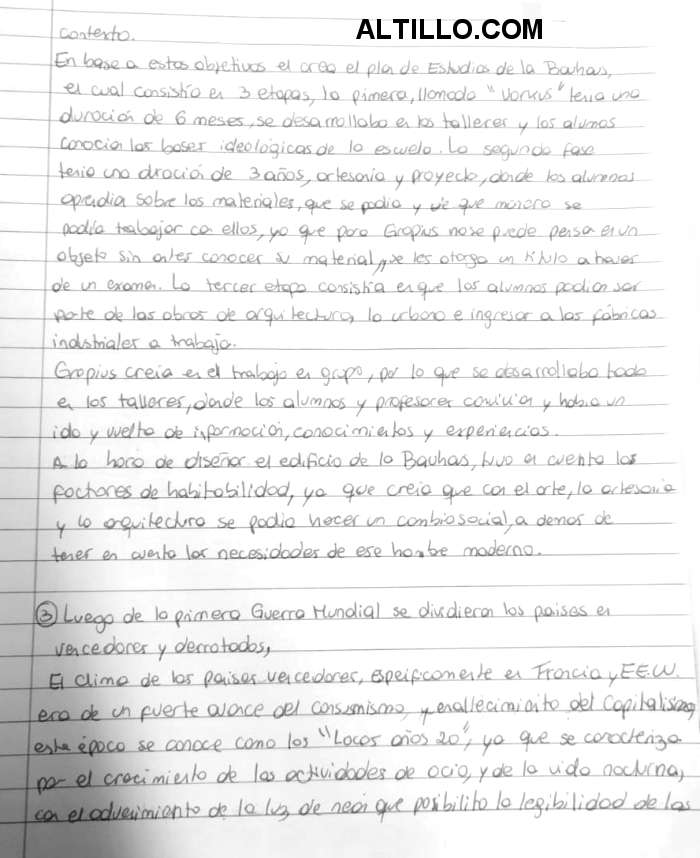 ALTILLO.COM
contexto.
En base a estos objetivos el crea el plan de Estudios de la Bauhas,
el cual consistia en 3 etapas, la pimera, llamada "Vorkus" tenia una
duración de 6 meses, se desarrollaba en los talleres y los alumnos
conocian las bases ideologicas de la escuela. La segunda fase
tenia una dración de 3 años, artesania y proyecto, donde los alumnos
aprendia sobre los materiales, que se podia y de que manera se
podia trabajar con ellos, ya que para Gropius no se puede pensar en un
objeto sin antes conocer su material, se les otorga un titulo a traves
de un examen. La tercer etapa consistia en que los alumnos podian ser
parte de las obras de arquitectura, lo urbano e ingresar a las fábricas
industriales a trabajar.
Gropius creia en el trabajo en grupo, por lo que se desarrollaba todo
en los talleres, donde los alumnos y profesores convivian y habia un
ida y vuelta de información, conocimientos y experiencias.
A la hora de diseñar el edificio de la Bauhas, tuvo en cuenta los
factores de habitabilidad, ya que creia que con el arte, la artesania
y la arquitectura se podia hacer un cambio social, a demas de
tener en cuenta las necesidades de ese hombre moderno.
③ Luego de la primera Guerra Mundial se dividieron los paises en
vencedores y derrotados,
El clima de los paises vencedores, espeificamente en Francia y EE.UU.
era de un fuerte avance del consumismo, y enaltecimiento del Capitalismo,
esta época se conoce como los "Locos años 20", ya que se caracteriza
por el crecimiento de las actividades de ocio, y de la vida nocturna,
con el advenimiento de la luz de neon que posibilito la legibilidad de las